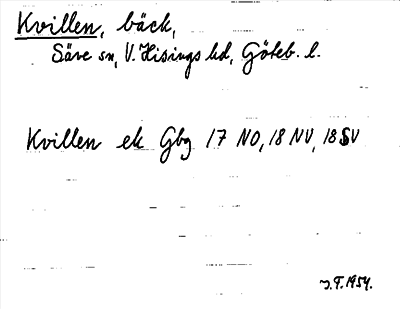 Kvillen, bäck,
Säve sn, V. Hisings hd, Göteb. l.
Kvillen ek Gbg 17 NO, 18 NV, 18 SV
J.F. 1954.